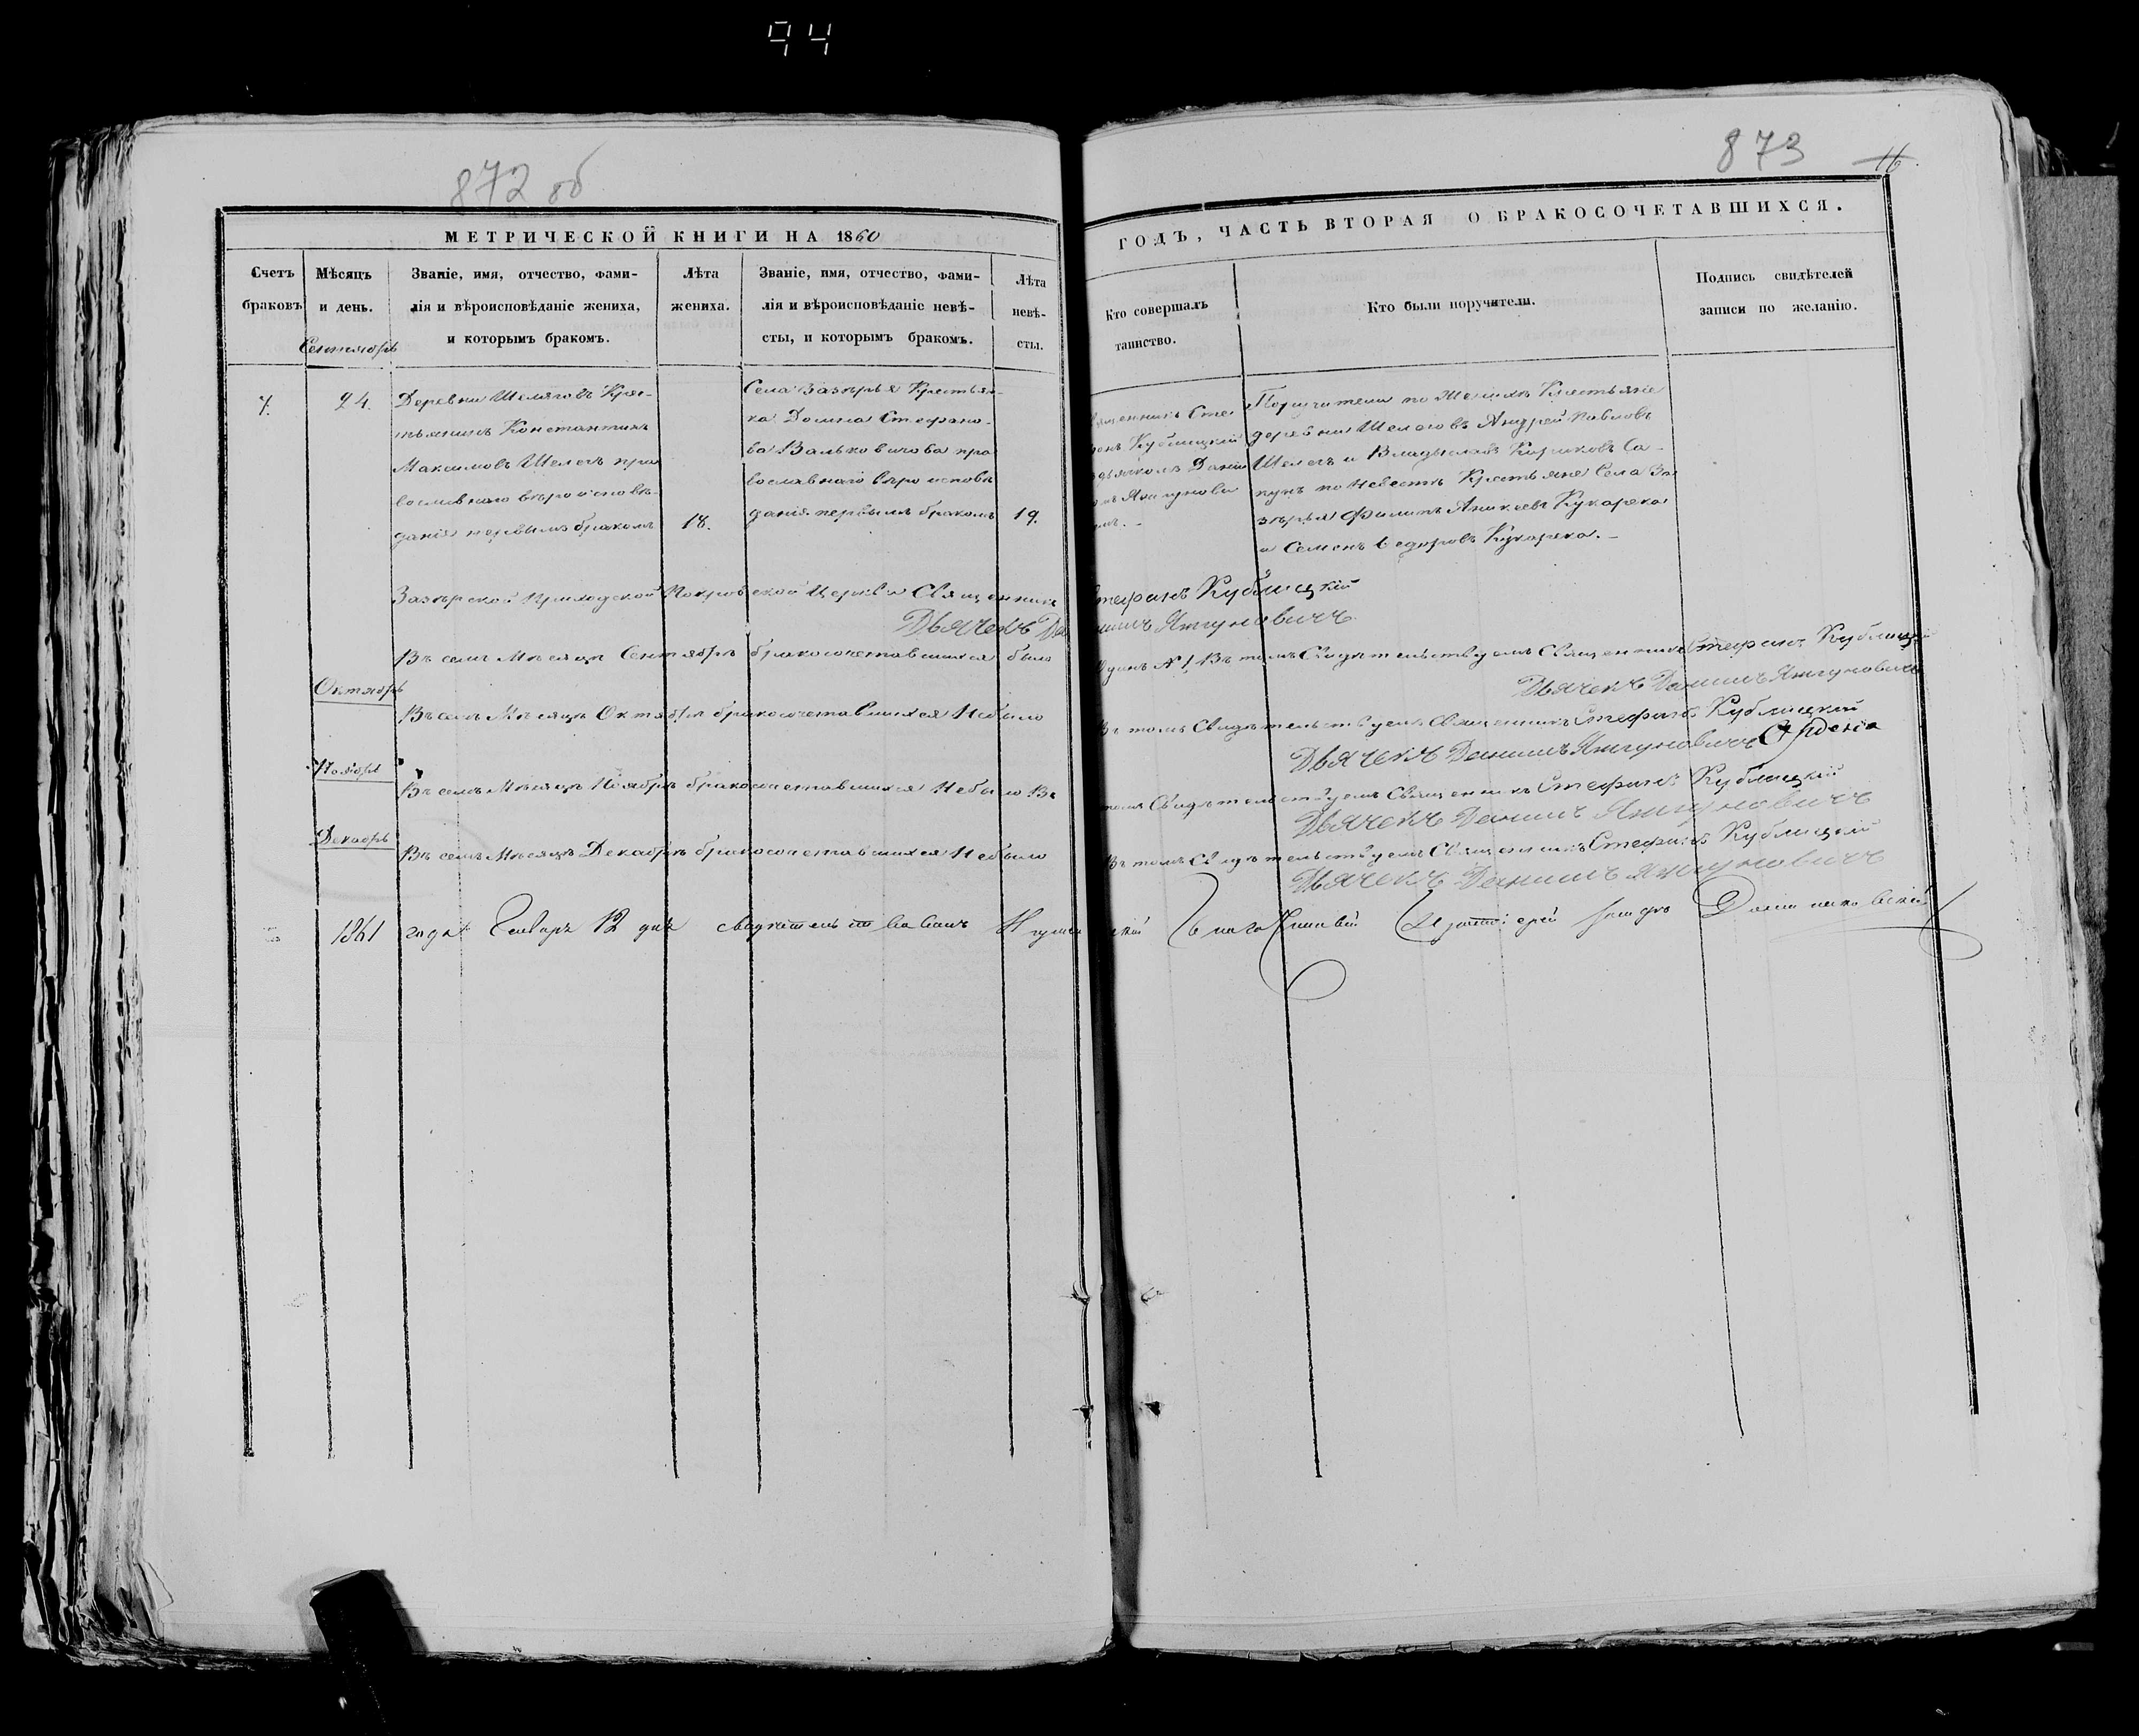 94
872 об
873
16
МЕТРИЧЕСКОЙ КНИГИ НА 1860
ГОДЪ, ЧАСТЬ ВТОРАЯ О БРАКОСОЧЕТАВШИХСЯ.
Счетъ браковъ
Мѣсяцъ и день.
Званіе, имя, отчество, фами-
лія и вѣроисповѣданіе жениха,
и которымъ бракомъ.
Лѣта
жениха.
Званіе, имя, отчество, фами-
лія и вѣроисповѣданіе невѣ-
сты, и которымъ бракомъ.
Лѣта
невѣ-
сты.
Кто совершалъ
таинство.
Кто были поручители.
Подпись свидѣтелей
записи по желанію.
Сентябрь
7.
24.
Деревни Шелеговъ Крес-
тьянинъ Константинъ
Максимовъ Шелегъ пра
вославнаго вѣроисповѣ-
данія первымъ бракомъ
18.
Села Заверья Крестьян-
ка Домна Стефано-
ва Вальковичова пра
вославнаго вѣроисповѣ
данія первымъ бракомъ
19.
Сте
Кублицкій
Дані
Поручители по Женихѣ Крестьяне
деревни Шелеговъ Андрей Павловъ
Шелегъ и Владыславъ Са-
по Невестѣ Крестьяне Села За
верья Филипъ Аникеевъ Кукарека
и Семенъ Ѳедоровъ Кукарека. -
Заверской Приходской Покровской Церкви Священникъ Стефанъ Кублицкій
Дьячекъ
Въ семъ Мѣсяцѣ Сентябрѣ бракосочетавшихся было Одинъ №1, Въ томъ Свидѣтельствуемъ Священникъ Стефанъ Кублицкій
Дьячекъ Даниилъ
Октябрь
Въ семъ Мѣсяцѣ Октябрѣ бракосочетавшихся Небыло Въ томъ Свидѣтельствуемъ Священникъ Стефанъ Кублицкій
Дьячекъ Даниилъ
Ноябрь
Въ семъ Мѣсяцѣ Ноябрѣ бракосочетавшихся Небыло Въ томъ Свидѣтельствуемъ Священникъ Стефанъ Кублицкій
Дьячекъ Даниилъ
Декабрь
Въ семъ Мѣсяцѣ Декабрѣ бракосочетавшихся Небыло Въ томъ Свидѣтельствуемъ Священникъ Стефанъ Кублицкій
Дьячекъ Даниилъ
1861 года Генваря 12 дня свидѣтельствовалъ